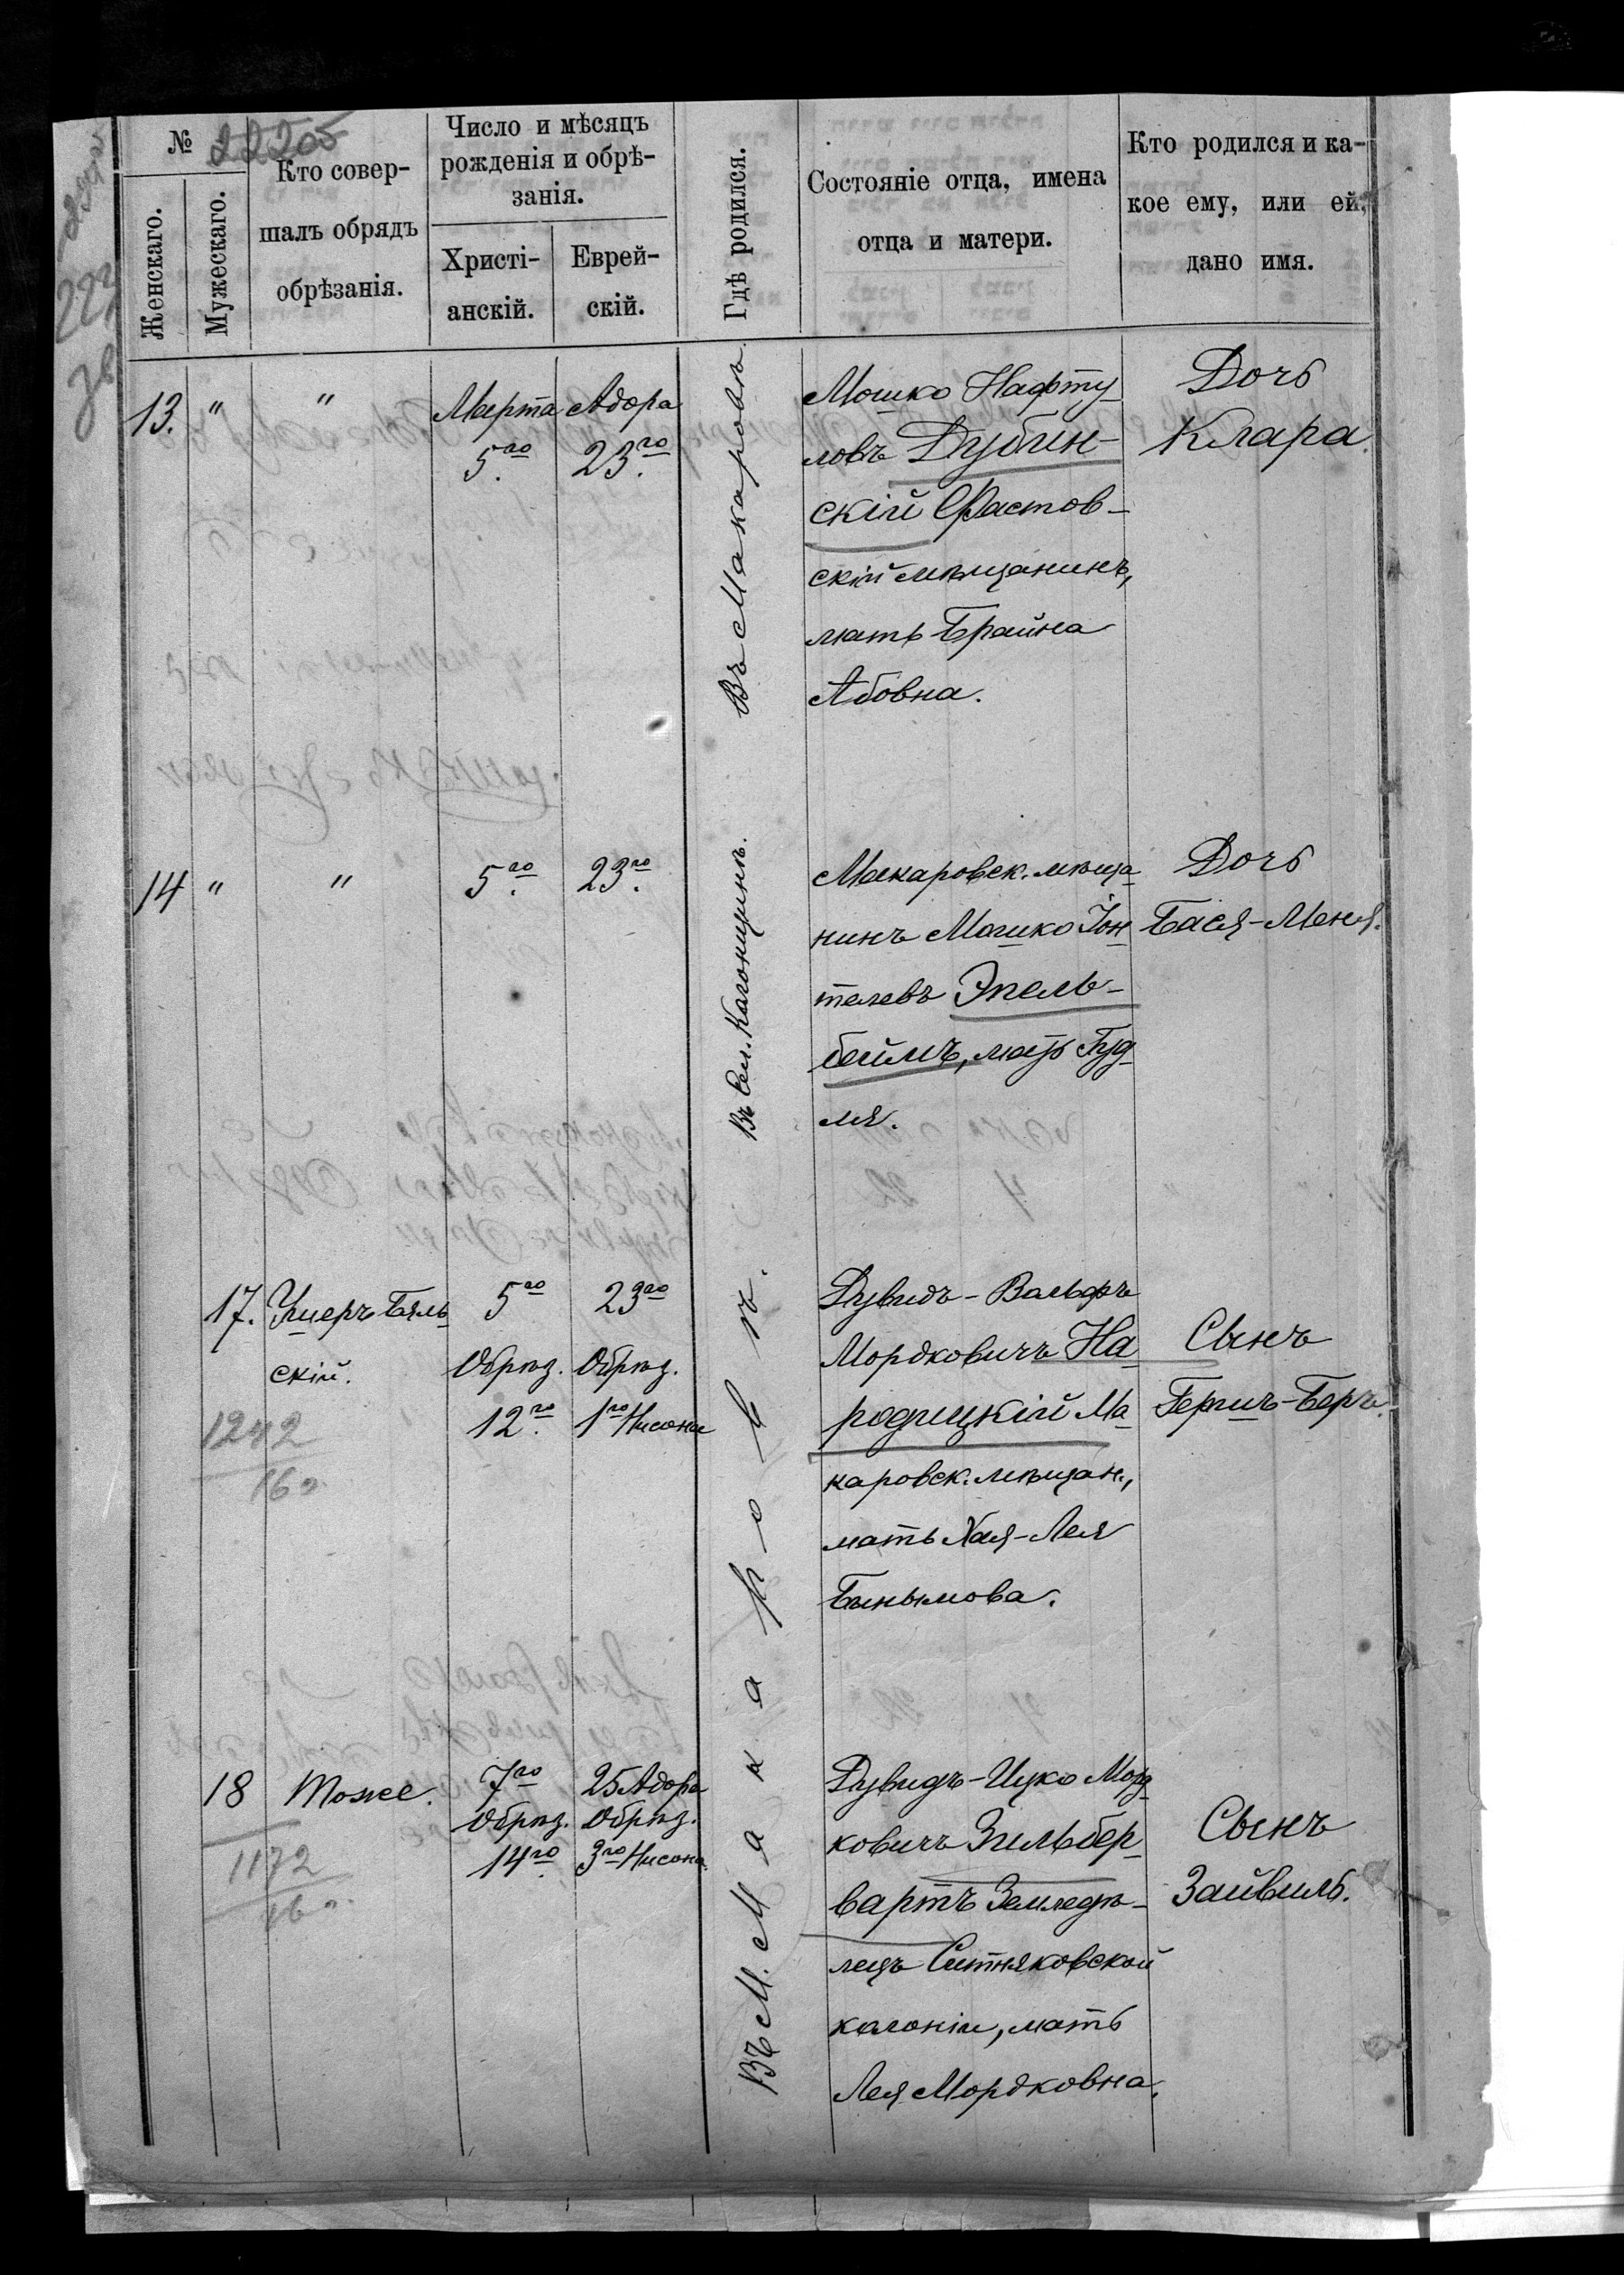 №
22205
Женскаго.
Мужескаго.
Кто совер-
шалъ обрядъ
обрѣзанія.
Число и мѣсяцъ
рожденія и обрѣ-
занія.
Христі-
анскій.
Еврей-
скій.
Гдѣ родился.
Состояніе отца, имена
отца и матери.
Кто родился и ка-
кое ему, или ей,
дано имя.
13. " " Марта Адора
5го 23го
Въ Макаровѣ.
Мошко Нафту
ловъ Дубин-
скій Фастов-
скій мѣщанинъ,
мать Брайна
Абовна.
Дочь
Клара.
14 " " 5го 23го
Макаровск. мѣща
нинъ Мошко Іон
телевъ Эпель-
беймъ, мать Гуд
ля.
Дочь
Бася-Меня.
17. Умеръ Бяль
скій.
5го 23го
Обрѣз. Обрѣз.
12го 1го Нисона
1242
16
Дувидъ-Вольфъ
Мордковичъ На
родицкій Ма
каровск. мѣщан.,
мать Хая-Лея
Сынъ
Гершъ-Беръ.
Въ М. Макаровѣ.
18 Тоже. 7го 25 Адора
Обрѣз. Обрѣз.
14го 3го Нисона
1172
16
Дувидъ-Ицко Морд
ковичъ Зильбер
вартъ Земледѣ-
лецъ Ситняковской
колоніи, мать
Лея Мордковна.
Сынъ
Зайвиль.